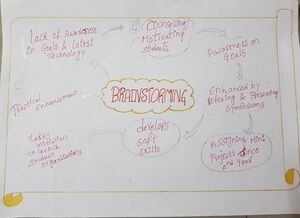 Lack of Awareness
On Goals & Latest
Technology
Counselling
Motivating
students
Awareness on
Goals
Enhanced by
Referring & Presenting
Symposiums
Assigning Mini
Projects Since
2nd Year
develops
Soft
Skills
takes
initiation
to launch
Student
organisations
Practical Enhancement
BRAINSTORMING